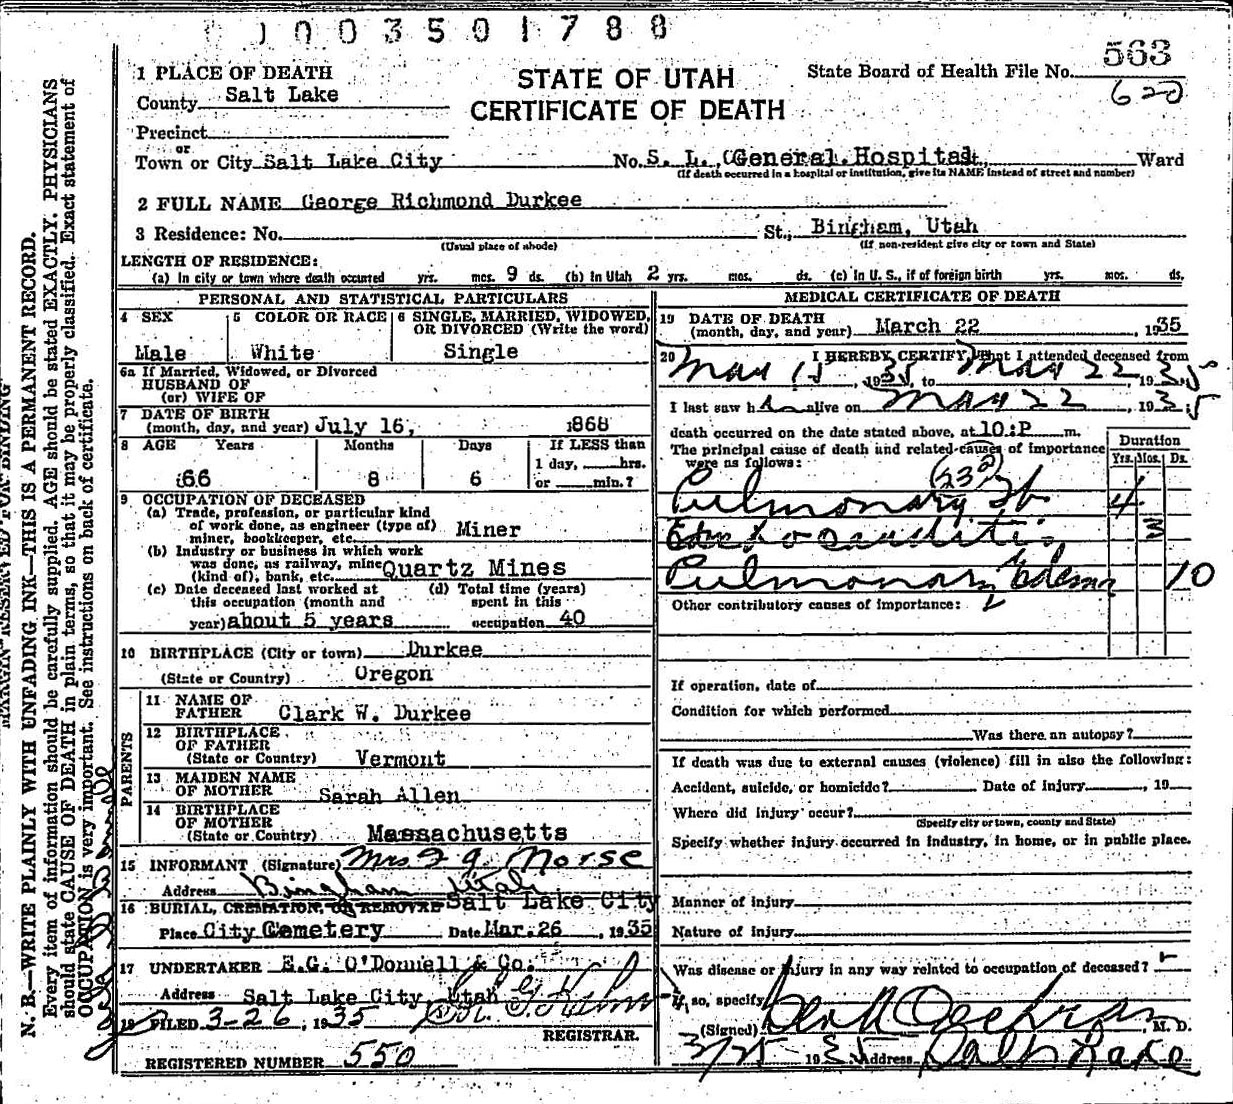 1003501788
563
620
STATE OF UTAH
CERTIFICATE OF DEATH
State Board of Health File No.
1 PLACE OF DEATH
County Salt Lake
Precinct
or
Town or City Salt Lake City No. S. L. General Hospital St., Ward
(If death occurred in a hospital or institution, give its NAME instead of street and number)
2 FULL NAME George Richmond Durkee
3 Residence: No. St., Bingham, Utah
(Usual place of abode) (If non-resident give city or town and State)
LENGTH OF RESIDENCE:
(a) In city or town where death occurred yrs. mos. 9 ds. (b) In Utah 2 yrs. mos. ds. (c) In U. S., if of foreign birth yrs. mos. ds.
PERSONAL AND STATISTICAL PARTICULARS
4 SEX
Male
5 COLOR OR RACE
White
6 SINGLE, MARRIED, WIDOWED, OR DIVORCED (Write the word)
Single
6a If Married, Widowed, or Divorced
HUSBAND OF
(or) WIFE OF
7 DATE OF BIRTH
(month, day, and year) July 16, 1868
8 AGE Years Months Days If LESS than
66 8 6 1 day, hrs.
or min.?
9 OCCUPATION OF DECEASED
(a) Trade, profession, or particular kind
of work done, as engineer (type of)
miner, bookkeeper, etc. Miner
(b) Industry or business in which work
was done, as railway, mine
(kind of), bank, etc. Quartz Mines
(c) Date deceased last worked at
this occupation (month and
year) about 5 years
(d) Total time (years)
spent in this
occupation 40
10 BIRTHPLACE (City or town) Durkee
(State or Country) Oregon
PARENTS
11 NAME OF
FATHER Clark W. Durkee
12 BIRTHPLACE
OF FATHER
(State or Country) Vermont
13 MAIDEN NAME
OF MOTHER Sarah Allen
14 BIRTHPLACE
OF MOTHER
(State or Country) Massachusetts
15 INFORMANT (Signature) Mrs F. A. Morse
Address Bingham Utah
16 BURIAL, CREMATION, OR REMOVAL Salt Lake City
Place City Cemetery Date Mar. 26, 1935
17 UNDERTAKER E.G. O'Donnell & Co.
Address Salt Lake City, Utah
18 FILED 3-26, 1935
REGISTRAR.
REGISTERED NUMBER 550
MEDICAL CERTIFICATE OF DEATH
19 DATE OF DEATH
(month, day, and year) March 22, 1935
20 I HEREBY CERTIFY, That I attended deceased from
Mar 15, 1935, to Mar 22, 1935
I last saw him alive on Mar 22, 1935
death occurred on the date stated above, at 10:P m.
The principal cause of death and related causes of importance
were as follows:
Duration
Yrs. Mos. Ds.
(23²)
Pulmonary Tb 4
3
Pulmonary Edema 10
Other contributory causes of importance:
If operation, date of
Condition for which performed
Was there an autopsy?
If death was due to external causes (violence) fill in also the following:
Accident, suicide, or homicide? Date of injury , 19
Where did injury occur?
(Specify city or town, county and State)
Specify whether injury occurred in industry, in home, or in public place.
Manner of injury
Nature of injury
Was disease or injury in any way related to occupation of deceased?
If so, specify
(Signed) Cochran, M. D.
3/25 1935 Address Salt Lake
MARGIN RESERVED FOR BINDING
N. B.—WRITE PLAINLY WITH UNFADING INK—THIS IS A PERMANENT RECORD.
Every item of information should be carefully supplied. AGE should be stated EXACTLY. PHYSICIANS
should state CAUSE OF DEATH in plain terms, so that it may be properly classified. Exact statement of
OCCUPATION is very important. See instructions on back of certificate.